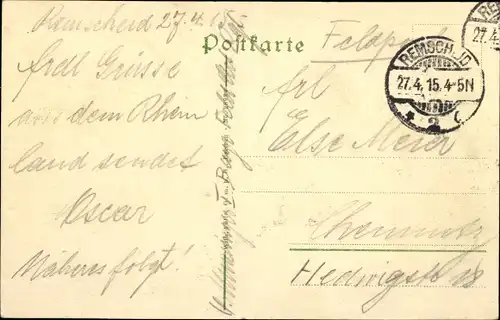 Remscheid 27.4.15
frdl Grüsse
aus dem Rhein
land sendet
Oscar
Näheres folgt!
Postkarte
Feldpost
REMSCHEID
27.4.15.4-5N
* 2 c
RE
27.4
Frl
Else Meier
Chemnitz
Hedwigstr 18